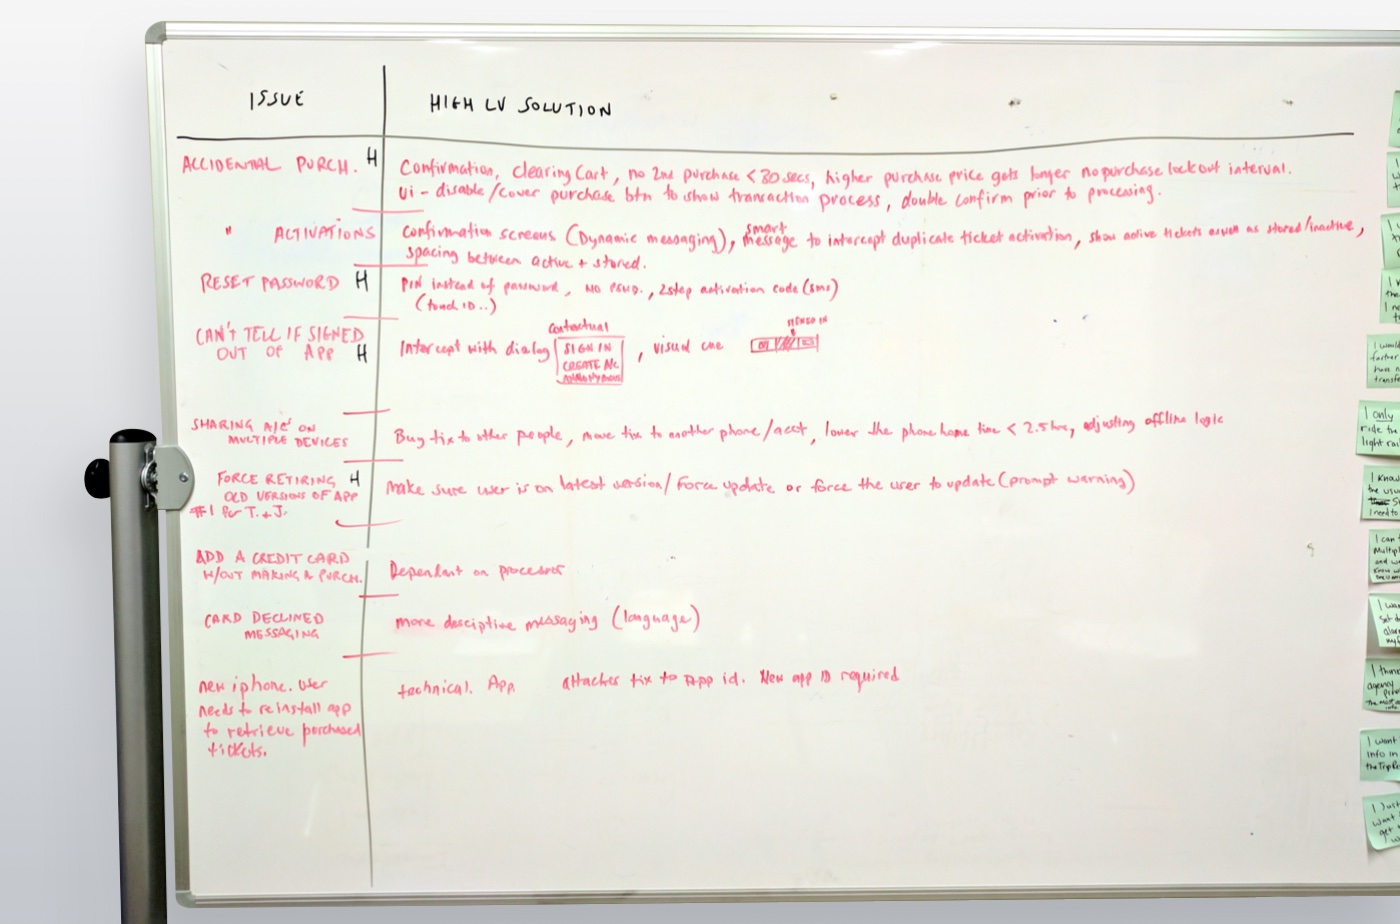 ISSUE
HIGH LV SOLUTION
ACCIDENTAL PURCH. H
Confirmation, clearing Cart, no 2nd purchase < 30 secs, higher purchase price gets longer no purchase lockout interval.
Ui - disable/cover purchase btn to show transaction process, double confirm prior to processing.
" ACTIVATIONS
Confirmation screens (Dynamic messaging), smart message to intercept duplicate ticket activation, show active tickets as stored/inactive,
spacing between active + stored.
RESET PASSWORD H
PIN instead of password, NO PSWD., 2step activation code (sms)
(touch ID..)
CAN'T TELL IF SIGNED
OUT OF APP H
contactual
Intercept with dialog
SIGN IN
CREATE A/C
ANONYMOUS
, visual cue
SIGNED IN
SHARING A/C'S ON
MULTIPLE DEVICES
Buy tix to other people, move tix to another phone/acct, lower the phone home time < 2.5 hrs, adjusting offline logic
FORCE RETIRING H
OLD VERSIONS OF APP
#1 Per T. + J.
Make sure user is on latest version/ Force update or force the user to update (prompt warning)
ADD A CREDIT CARD
W/OUT MAKING A PURCH.
Dependant on processor
CARD DECLINED
MESSAGING
more desciptive messaging (language)
new iphone. User
needs to reinstall app
to retrieve purchased
tickets.
technical. App attaches tix to App id. New app ID required
I would
faster
transfe
I only
ride the
light rai
I know
the usu
I need to
I can
Multipl
and w
I wan
Set d
alar
my
I think
agency
I want
info in
the Trip
I Just
want
get